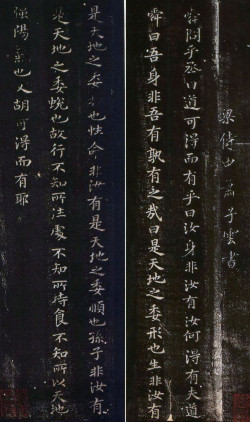 梁侍中蕭子雲書
舜問乎丞曰道可得而有乎曰汝身非汝有汝何得有夫道
舜曰吾身非吾有孰有之哉曰是天地之委形也生非汝有
是天地之委和也性命非汝有是天地之委順也孫子非汝有
是天地之委蛻也故行不知所往處不知所持食不知所以天地
强陽氣也又胡可得而有耶